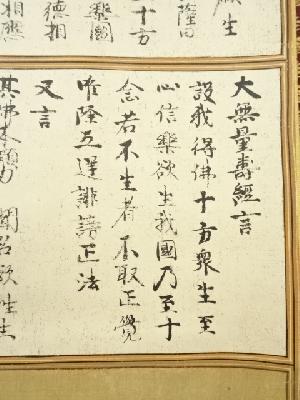 大無量壽經言
設我得佛十方衆生至
心信樂欲生我國乃至十
念若不生者不取正覺
唯除五逆誹謗正法
又言
其佛本願力 聞名欲往生